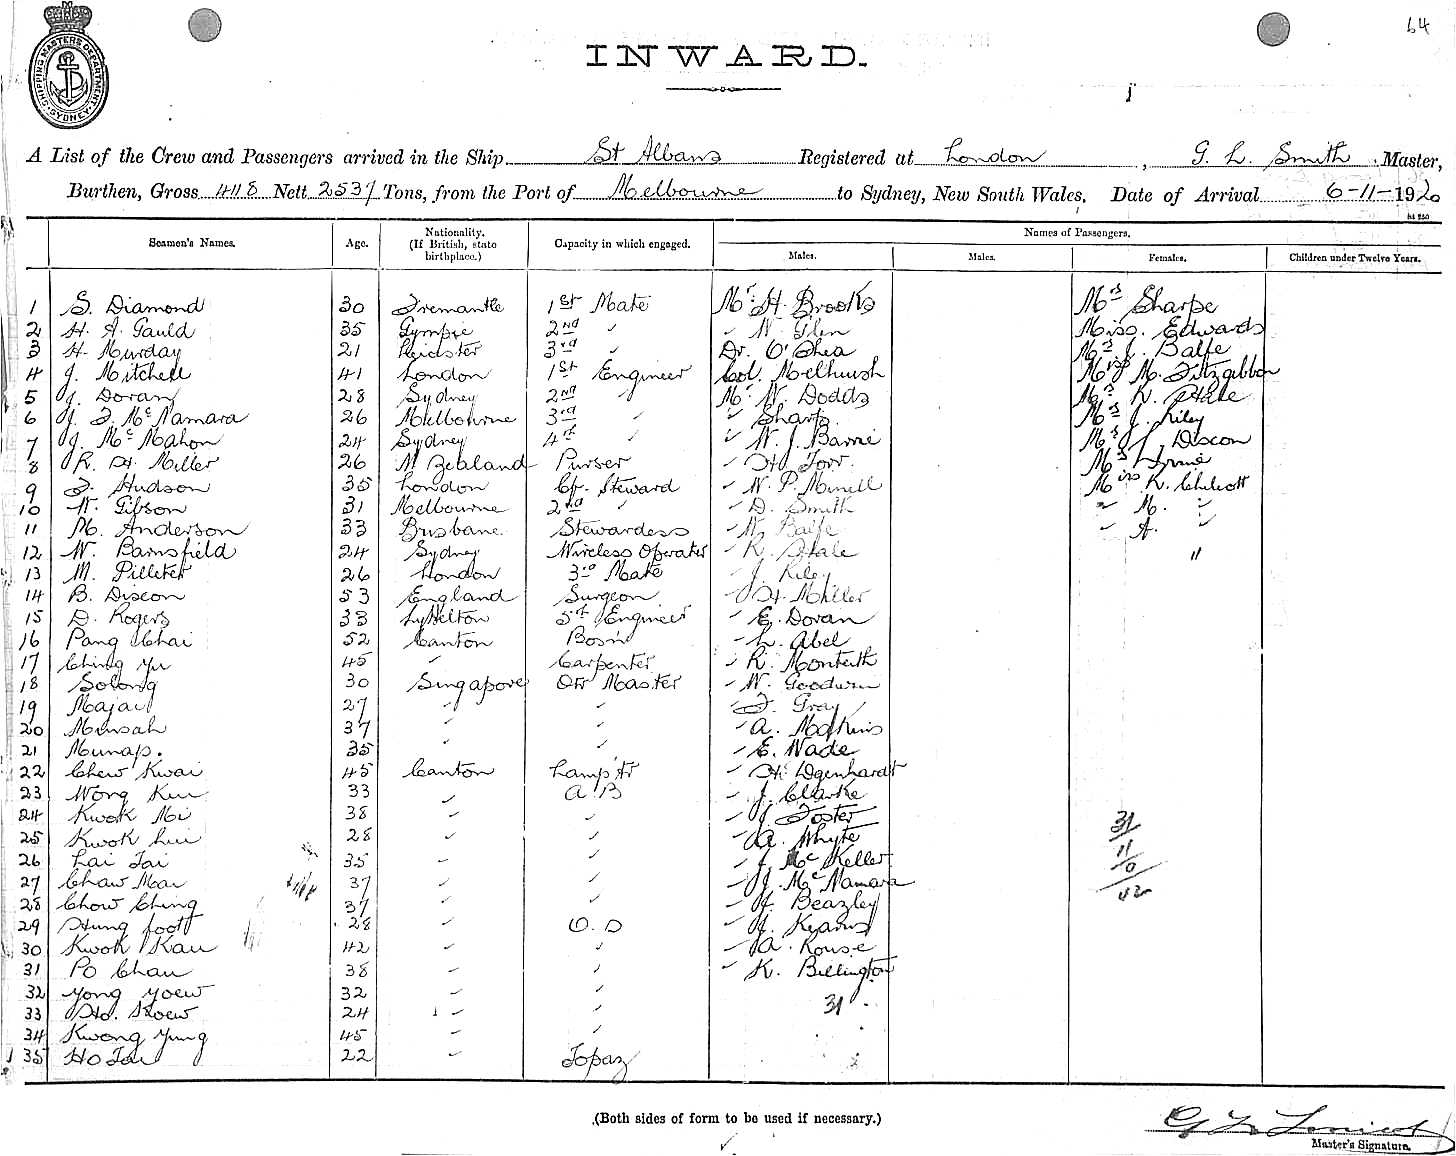 64
SHIPPING MASTERS DEPARTMENT SYDNEY
INWARD.
A List of the Crew and Passengers arrived in the Ship St Albans Registered at London, G. L. Smith, Master,
Burthen, Gross 4118 Nett 2537 Tons, from the Port of Melbourne to Sydney, New South Wales, Date of Arrival 6-11-1920
Names of Passengers.
Seamen's Names. Age. Nationality. (If British, state birthplace.) Capacity in which engaged. Males. Males. Females. Children under Twelve Years.
1 S. Diamond 30 Fremantle 1st Mate Mr. H. Brooks Mrs Sharpe
2 H. A. Gauld 35 Gympie 2nd " " W. Glen Miss. Edwards
3 H. Murday 21 Leicister 3rd " Dr. O'Shea Mrs J. Balfe
4 J. Mitchell 41 London 1st Engineer Col. Melhuish Miss M. Fitzgibbon
5 J. Doran 28 Sydney 2nd " Mr. W. Dodds Mrs K. Hale
6 J. F. McNamara 26 Melbourne 3rd " " Sharp Mrs J. Riley
7 J. McMahon 24 Sydney 4th " " W. J. Barrie Mrs Discon
8 R. H. Miller 26 N Zealand Purser " H. Torr Mrs
9 F. Hudson 35 London Cf. Steward " W. P. Minell Miss K. Chilcott
10 W. Gibson 31 Melbourne 2nd " " D. Smith " M. "
11 M. Anderson 33 Brisbane Stewardess " W. Balfe " A. "
12 W. Barnsfield 24 Sydney Wireless Operator " K. Hale "
13 M. Pilleter 26 London 3rd Mate " J. Riley
14 B. Discon 53 England Surgeon " H. Miller
15 D. Rogers 33 Lyttelton 5th Engineer " E. Doran
16 Pang Chai 52 Canton Bosn " L. Abel
17 Ching Yu 45 " Carpenter " R. Monteith
18 Solong 30 Singapore Qtr Master " W. Goodwin
19 Majail 27 " " " F. Gray
20 Minsah 37 " " " A. Madkins
21 Munap. 35 " " " E. Wade
22 Chew Kwai 45 Canton Lamp Tr " H. Degenhardt
23 Wong Kui 33 " A B " J. Clarke
24 Kwok Mi 38 " " " J. Foster
25 Kwok Lui 28 " " " A. Whyte
26 Lai Tai 35 " " " J. McKeller
27 Chaw Mai 37 " " " J. McNamara
28 Chow Ching 37 " " " J. Beazley
29 Hung foott 28 " O. S " J. Kearns
30 Kwok Kau 42 " " " A. Rouse
31 Po Chau 38 " " " K. Billington
32 Yong Yoew 32 " "
33 Ho. Koew 24 " "
34 Kwong Yung 45 " "
35 Ho Tai 22 " Topaz
31
31
11
0
42
(Both sides of form to be used if necessary.)
Master's Signature.